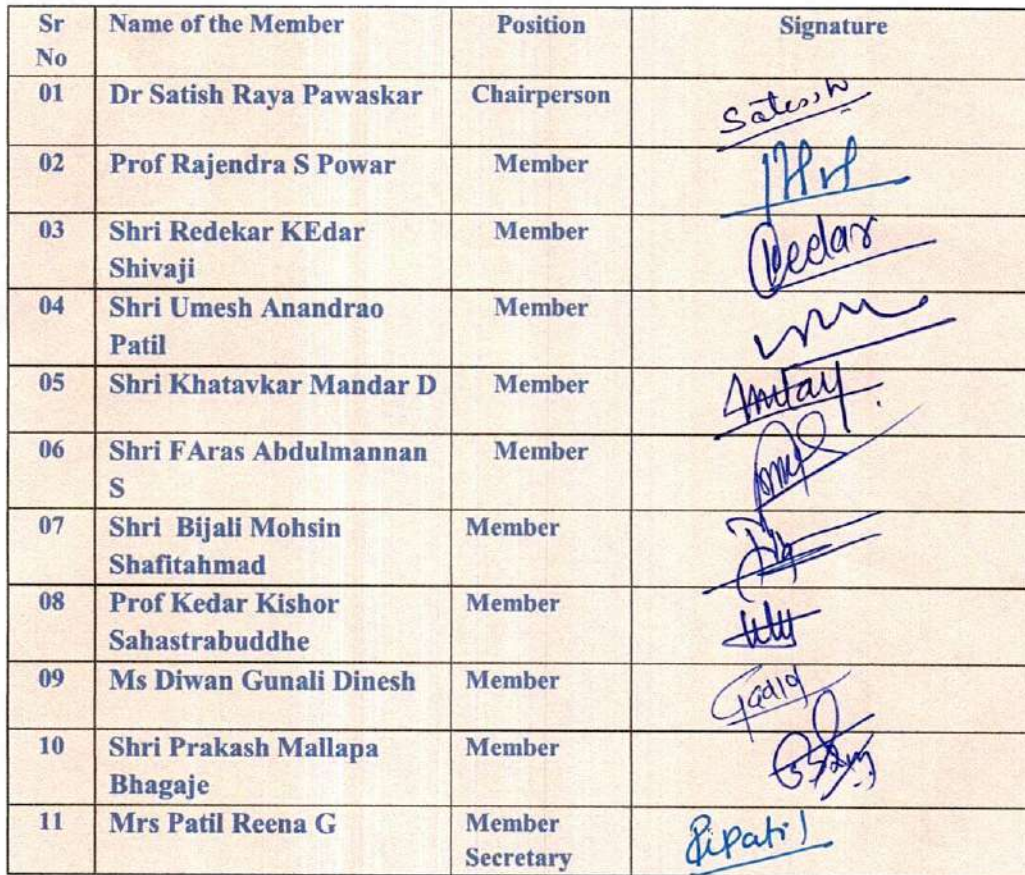 Sr No Name of the Member Position Signature
01 Dr Satish Raya Pawaskar Chairperson Satish
02 Prof Rajendra S Powar Member
03 Shri Redekar KEdar Member Kedar
Shivaji
04 Shri Umesh Anandrao Member
Patil
05 Shri Khatavkar Mandar D Member
06 Shri FAras Abdulmannan Member
S
07 Shri Bijali Mohsin Member
Shafitahmad
08 Prof Kedar Kishor Member
Sahastrabuddhe
09 Ms Diwan Gunali Dinesh Member
10 Shri Prakash Mallapa Member
Bhagaje
11 Mrs Patil Reena G Member
Secretary